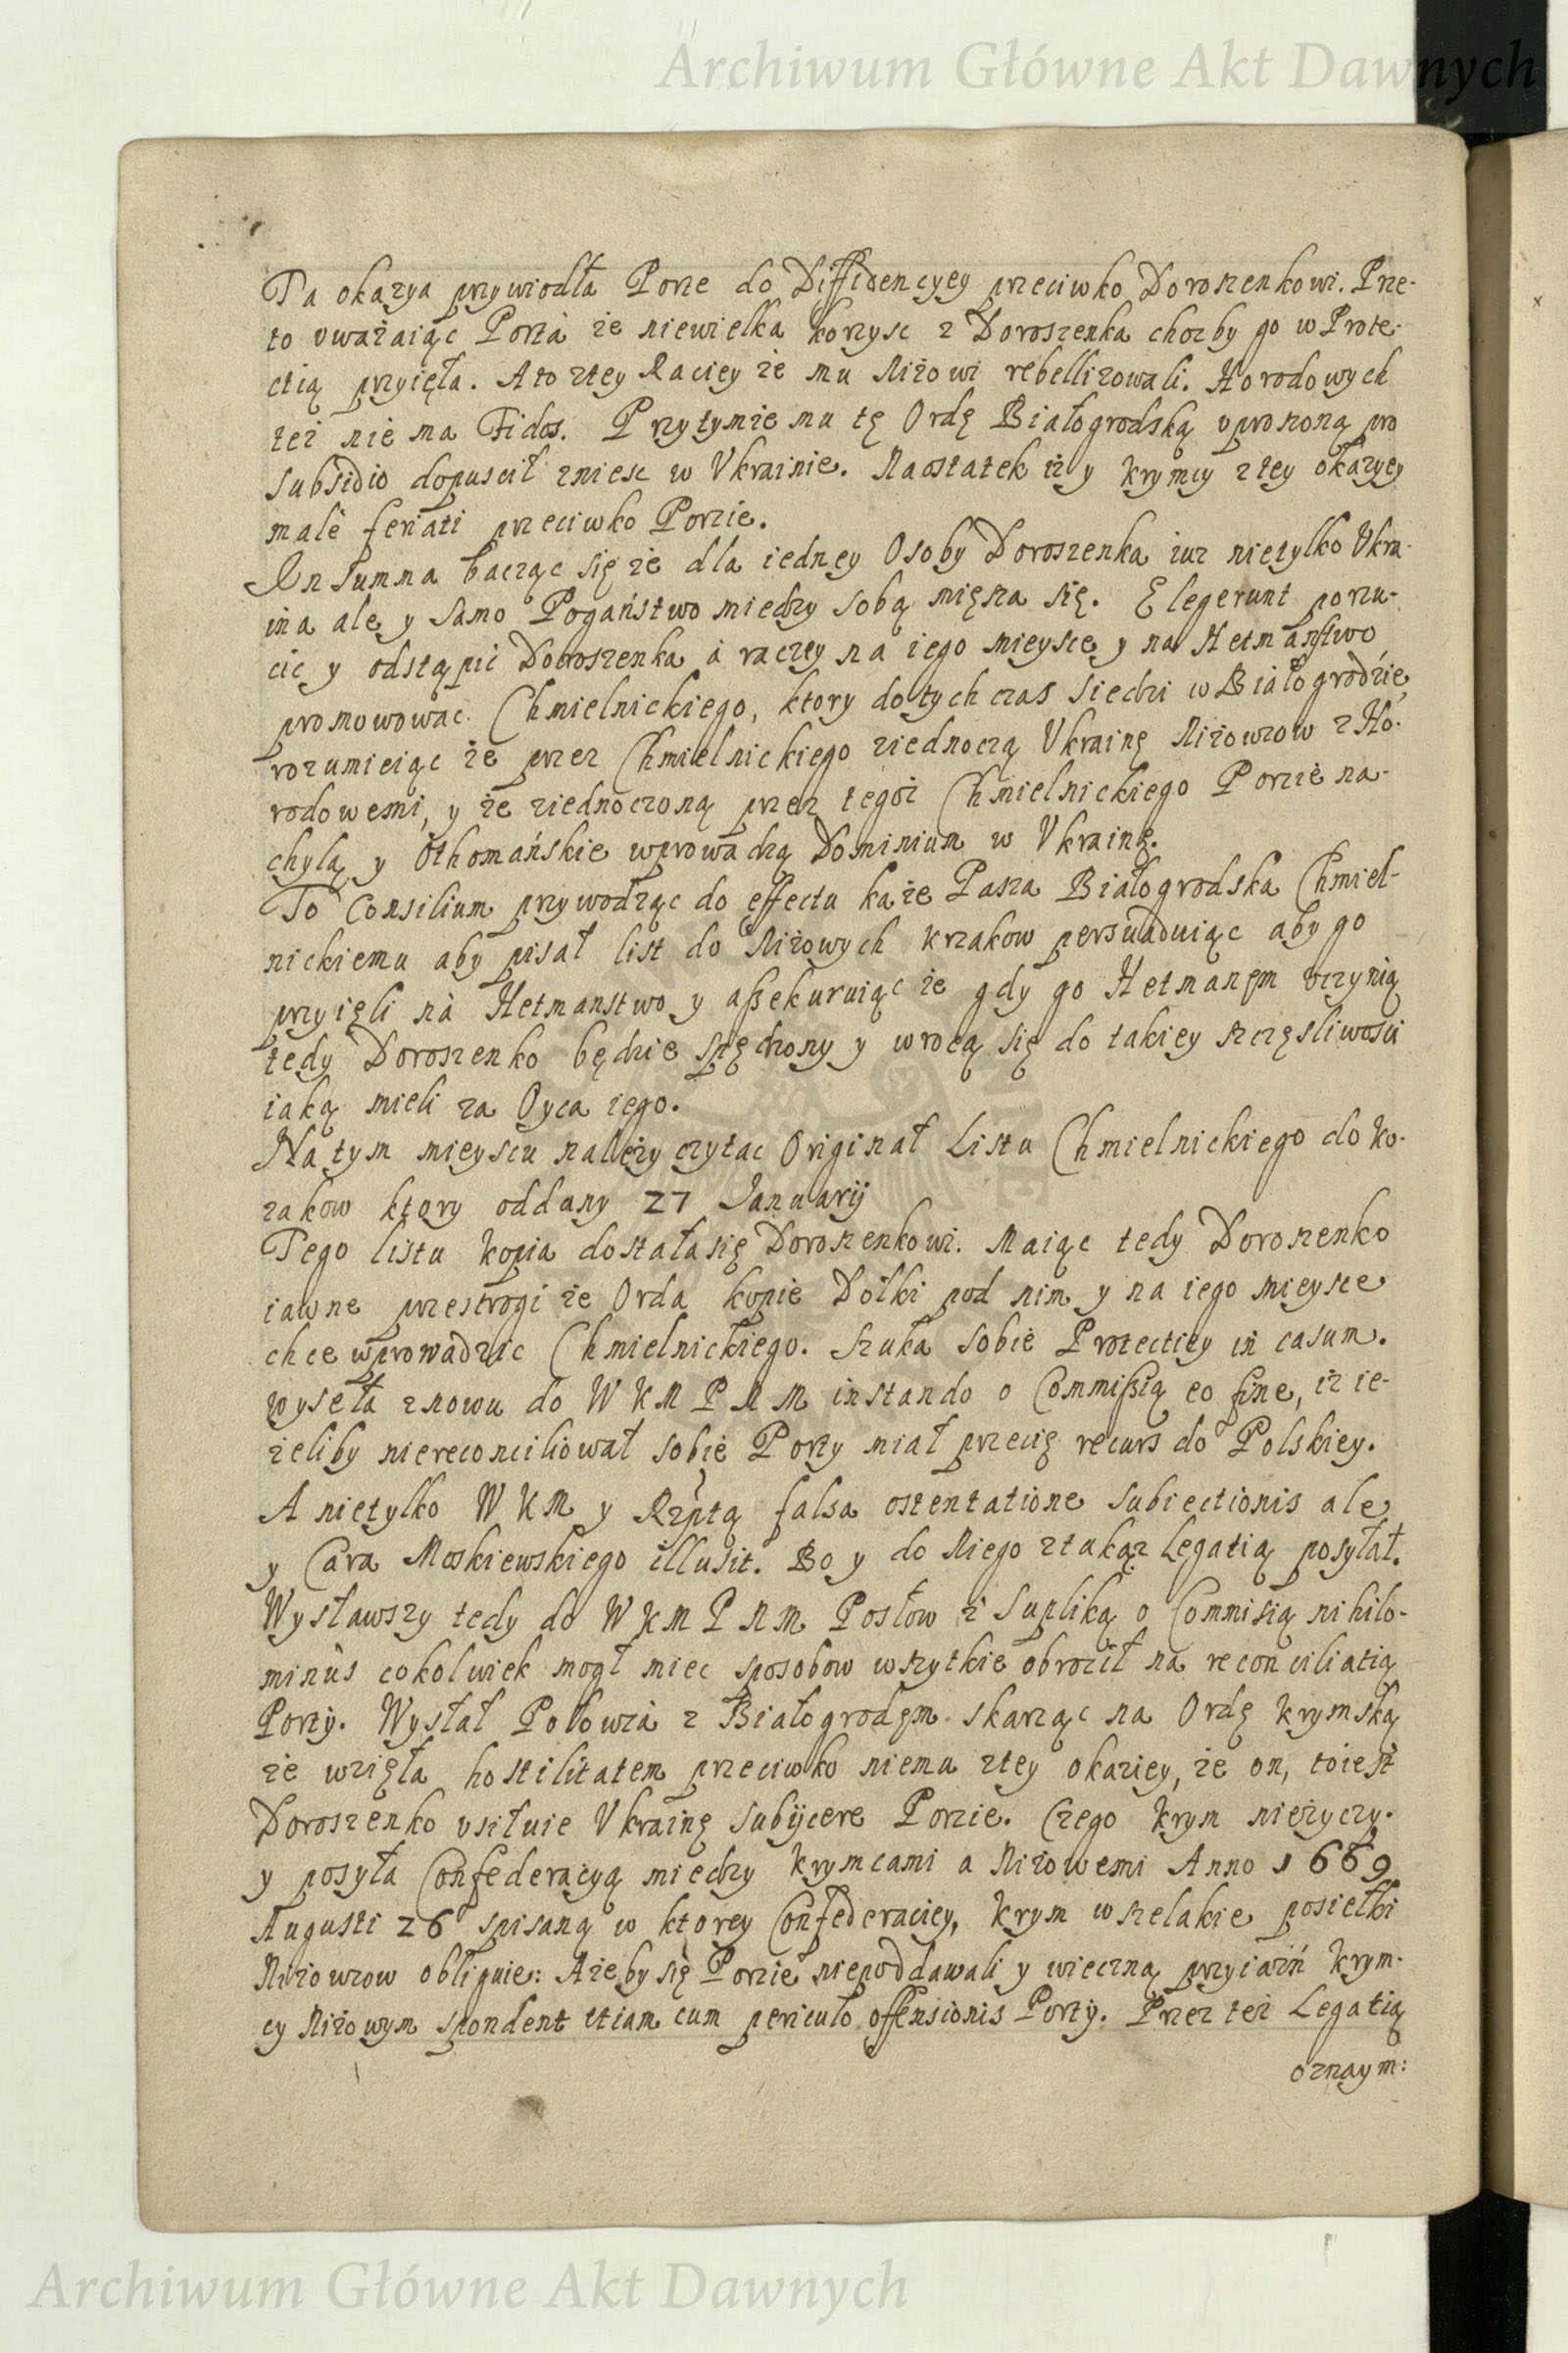 Archiwum Główne Akt Dawnych
Ta okazya przywiodła Porże do Diffidencyey przeciwko Doroszenkowi. Prze-
to vważaiąc Portà że niewielka korzysc z Doroszenka chocby go w Prote-
ctią przyięła. A to ztey Raciey że mu Niżowi rebellizowali. Horodowych
też nie ma Fidos. Przytymże mu tę Ordę Białogrodską vproszoną pro
subsidio dopuscił zniesc w Vkrainie. Naostatek iż y Krymcy ztey okazyey
malè feriati przeciwko Porzie.
In summa bacząc się że dla iedney Osoby Doroszenka iuz nietylko Vkra-
ina ale y samo Pogaństwo miedzy sobą mięsza się. Elegerunt porzu-
cic y odstąpic Doroszenka à raczey na iego mieysce y na Hetmaństwo
promowowac Chmielnickiego, ktory dotychczas siedzi w Białogrodzie,
rozumieiąc że przez Chmielnickiego ziednoczą Vkrainę Niżowzow z Ho-
rodowemi, y że ziednoczoną przez tegoż Chmielnickiego Porzie na-
chylą y Othomańskie wprowadzą Dominium w Vkrainę.
To Consilium przywodząc do effectu każe Pasza Białogrodska Chmiel-
nickiemu aby pisał list do Niżowych Kzakow persuaduiąc aby go
przyięli nà Hetmanstwo y assekuruiąc że gdy go Hetmanem vczynią
tedy Doroszenko będzie spędzony y wrocą się do takiey szczęsliwosci
iaką mieli za Oyca iego.
Na tym mieyscu należy czytac Originał Listu Chmielnickiego do Ko-
zakow ktory oddany 27 Januarij
Tego listu kopia dostała się Doroszenkowi. Maiąc tedy Doroszenko
iawne przestrogi że Orda kopie Dołki pod nim y na iego mieysce
chce wprowadzic Chmielnickiego. Szuka sobie Protectiey in casum.
wyseła znowu do W K M P N M instando o Commissią eo fine, iż ie-
żeliby niereconciliował sobie Porty miał przecię recurs do Polskiey.
A nietylko W K M y Rzptą falsa ostentatione subiectionis ale
y Cara Moskiewskiego illusit. Bo y do Niego ztakąz Legatią posyłał.
Wysławszy tedy do W K M P N M Posłow z Supliką o Commisią nihilo-
minùs cokolwiek mogł miec sposobow wszytkie obrocił na reconciliatią
Porty. Wysłał Połowzà z Białogrodem skarząc na Ordę Krymską
że wzięła hostilitatem przeciwko niemu ztey okaziey, że on, toiest
Doroszenko vsiłuie Vkrainę subijcere Porzie. Czego Krym nieżyczy.
y posyła Confederacyą miedzy Krymcami a Niżowemi Anno 1669
Augusti 26 spisaną w ktorey Confederaciey, Krym wszelakie posiełki
Niżowzow obliguie: Ażeby się Porzie niepoddawali y wieczną przyiaźń Krym-
cy Niżowym spondent etiam cum periculo offensionis Porty. Przez też Legatią
oznaym:
Archiwum Główne Akt Dawnych